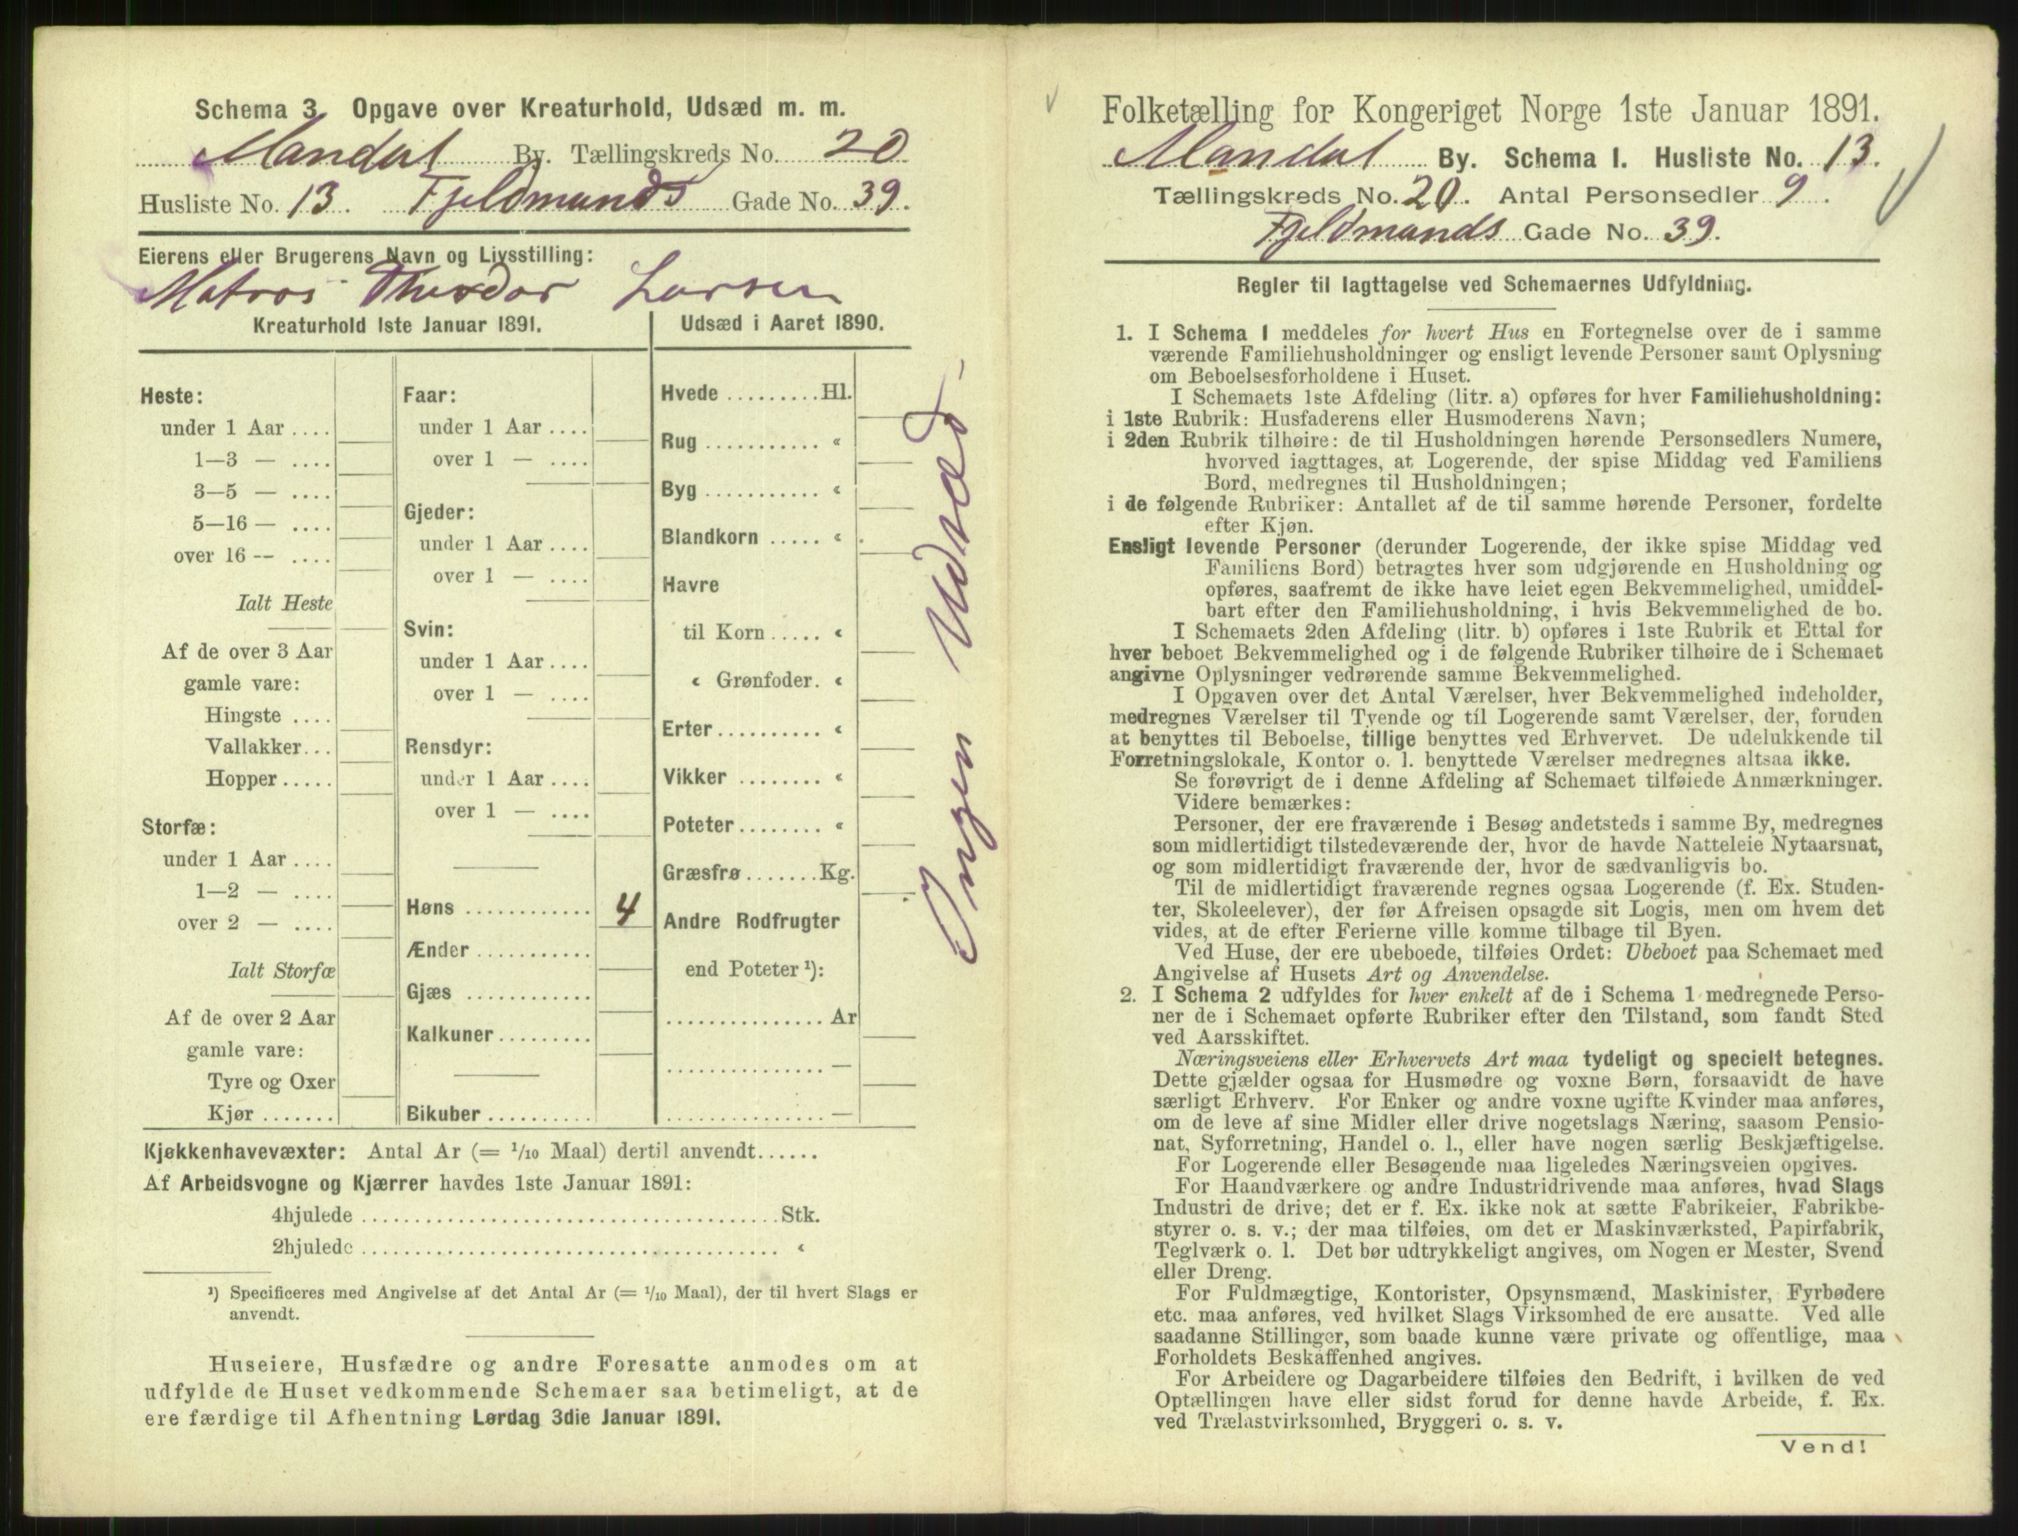 Schema 3. Opgave over Kreaturhold, Udsæd m. m.
Mandal By. Tællingskreds No. 20
Husliste No. 13. Fjeldmands Gade No. 39.
Eierens eller Brugerens Navn og Livsstilling:
Matros Theodor Larsen
Kreaturhold 1ste Januar 1891.
Heste:
under 1 Aar ....
1—3 — ....
3—5 — ....
5—16 — ....
over 16 — ....
Ialt Heste
Af de over 3 Aar
gamle vare:
Hingste ....
Vallakker...
Hopper .....
Storfæ:
under 1 Aar ....
1—2 — ....
over 2 — ....
Ialt Storfæ
Af de over 2 Aar
gamle vare:
Tyre og Oxer
Kjør .......
Faar:
under 1 Aar ....
over 1 — ....
Gjeder:
under 1 Aar ....
over 1 — ....
Svin:
under 1 Aar ....
over 1 — ....
Rensdyr:
under 1 Aar ....
over 1 — ....
Høns ............ 4
Ænder ...........
Gjæs ............
Kalkuner.........
Bikuber ..........
Udsæd i Aaret 1890.
Hvede .........Hl.
Rug ......... «
Byg ........... «
Blandkorn ..... «
Havre
til Korn ..... «
« Grønfoder. «
Erter.......... «
Vikker ........ «
Poteter........ «
Græsfrø .......Kg.
Andre Rodfrugter
end Poteter ¹):
............... Ar
............... —
............... —
Ingen Udsæd
Kjøkkenhavevæxter: Antal Ar (= 1/10 Maal) dertil anvendt......
Af Arbeidsvogne og Kjærrer havdes 1ste Januar 1891:
4hjulede ........................................Stk.
2hjulede ........................................ «
¹) Specificeres med Angivelse af det Antal Ar (= 1/10 Maal), der til hvert Slags er
anvendt.
Huseiere, Husfædre og andre Foresatte anmodes om at
udfylde de Huset vedkommende Schemaer saa betimeligt, at de
ere færdige til Afhentning Lørdag 3die Januar 1891.
Folketælling for Kongeriget Norge 1ste Januar 1891.
Mandal By. Schema 1. Husliste No. 13.
Tællingskreds No. 20. Antal Personsedler 9.
Fjeldmands Gade No. 39.
Regler til Iagttagelse ved Schemaernes Udfyldning.
1. I Schema 1 meddeles for hvert Hus en Fortegnelse over de i samme
værende Familiehusholdninger og ensligt levende Personer samt Oplysning
om Beboelsesforholdene i Huset.
I Schemaets 1ste Afdeling (litr. a) opføres for hver Familiehusholdning:
i 1ste Rubrik: Husfaderens eller Husmoderens Navn;
i 2den Rubrik tilhøire: de til Husholdningen hørende Personsedlers Numere,
hvorved iagttages, at Logerende, der spise Middag ved Familiens
Bord, medregnes til Husholdningen;
i de følgende Rubriker: Antallet af de til samme hørende Personer, fordelte
efter Kjøn.
Ensligt levende Personer (derunder Logerende, der ikke spise Middag ved
Familiens Bord) betragtes hver som udgjørende en Husholdning og
opføres, saafremt de ikke have leiet egen Bekvemmelighed, umiddel-
bart efter den Familiehusholdning, i hvis Bekvemmelighed de bo.
I Schemaets 2den Afdeling (litr. b) opføres i 1ste Rubrik et Ettal for
hver beboet Bekvemmelighed og i de følgende Rubriker tilhøire de i Schemaet
angivne Oplysninger vedrørende samme Bekvemmelighed.
I Opgaven over det Antal Værelser, hver Bekvemmelighed indeholder,
medregnes Værelser til Tyende og til Logerende samt Værelser, der, foruden
at benyttes til Beboelse, tillige benyttes ved Erhvervet. De udelukkende til
Forretningslokale, Kontor o. l. benyttede Værelser medregnes altsaa ikke.
Se forøvrigt de i denne Afdeling af Schemaet tilføiede Anmærkninger.
Videre bemærkes:
Personer, der ere fraværende i Besøg andetsteds i samme By, medregnes
som midlertidigt tilstedeværende der, hvor de havde Natteleie Nytaarsnat,
og som midlertidigt fraværende der, hvor de sædvanligvis bo.
Til de midlertidigt fraværende regnes ogsaa Logerende (f. Ex. Studen-
ter, Skoleelever), der før Afreisen opsagde sit Logis, men om hvem det
vides, at de efter Ferierne ville komme tilbage til Byen.
Ved Huse, der ere ubeboede, tilføies Ordet: Ubeboet paa Schemaet med
Angivelse af Husets Art og Anvendelse.
2. I Schema 2 udfyldes for hver enkelt af de i Schema 1 medregnede Perso-
ner de i Schemaet opførte Rubriker efter den Tilstand, som fandt Sted
ved Aarsskiftet.
Næringsveiens eller Erhvervets Art maa tydeligt og specielt betegnes.
Dette gjælder ogsaa for Husmødre og voxne Børn, forsaavidt de have
særligt Erhverv. For Enker og andre voxne ugifte Kvinder maa anføres,
om de leve af sine Midler eller drive nogetslags Næring, saasom Pensio-
nat, Syforretning, Handel o. l., eller have nogen særlig Beskjæftigelse.
For Logerende eller Besøgende maa ligeledes Næringsveien opgives.
For Haandværkere og andre Industridrivende maa anføres, hvad Slags
Industri de drive; det er f. Ex. ikke nok at sætte Fabrikeier, Fabrikbe-
styrer o. s. v.; der maa tilføies, om det er Maskinværksted, Papirfabrik,
Teglværk o. l. Det bør udtrykkeligt angives, om Nogen er Mester, Svend
eller Dreng.
For Fuldmægtige, Kontorister, Opsynsmænd, Maskinister, Fyrbødere
etc. maa anføres, ved hvilket Slags Virksomhed de ere ansatte. Ved alle
saadanne Stillinger, som baade kunne være private og offentlige, maa
Forholdets Beskaffenhed angives.
For Arbeidere og Dagarbeidere tilføies den Bedrift, i hvilken de ved
Optællingen have eller sidst forud for denne havde Arbeide, f. Ex.
ved Trælastvirksomhed, Bryggeri o. s. v.
Vend!